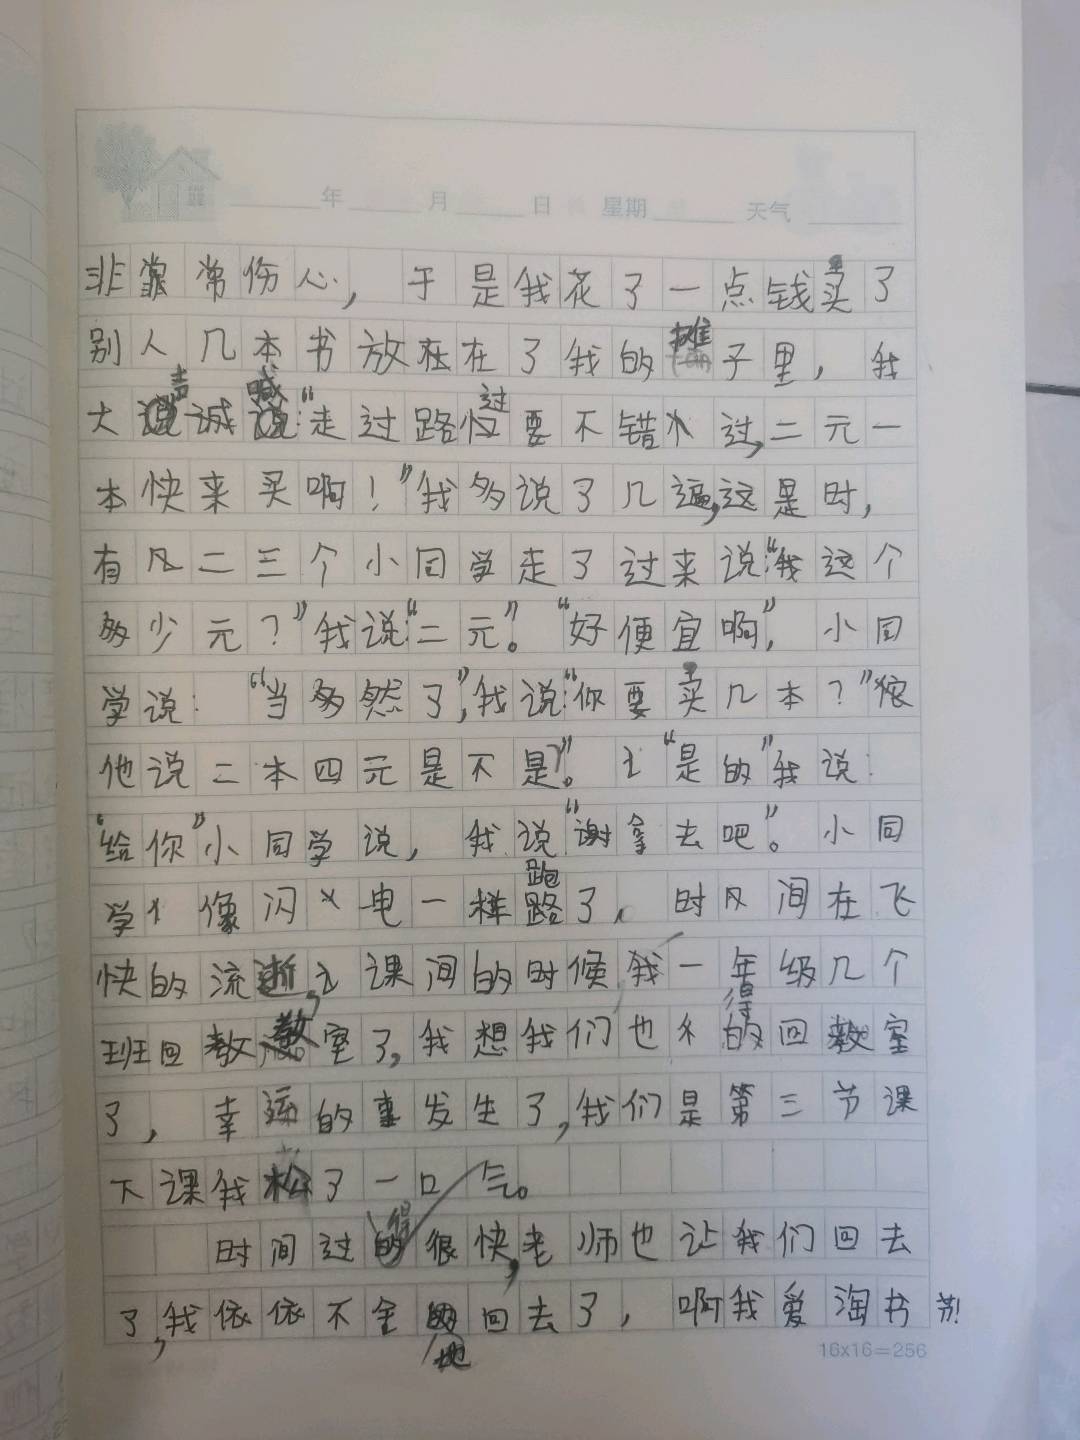 年 月 日 星期 天气
非常伤心,于是我花了一点钱买了
别人几本书放在在了我的摊子里,我
大声喊:“走过路过要不错过,二元一
本快来买啊!”我多说了几遍,这是时,
有二三个小同学走了过来说:“我这个
多少元?”我说:“二元。”“好便宜啊”,小同
学说:“当多然了”,我说:“你要买几本?”
他说二本四元是不是?”。“是的”我说:
“给你”小同学说,我说“谢拿去吧”。小同
学像闪电一样跑了。时间在飞
快的流逝,课间的时候我一年级几个
班回教室了,我想我们也得回教室
了,幸运的事发生了,我们是第三节课
下课我松了一口气。
时间过得很快,老师也让我们回去
了,我依依不舍地回去了,啊我爱淘书节!
16x16=256